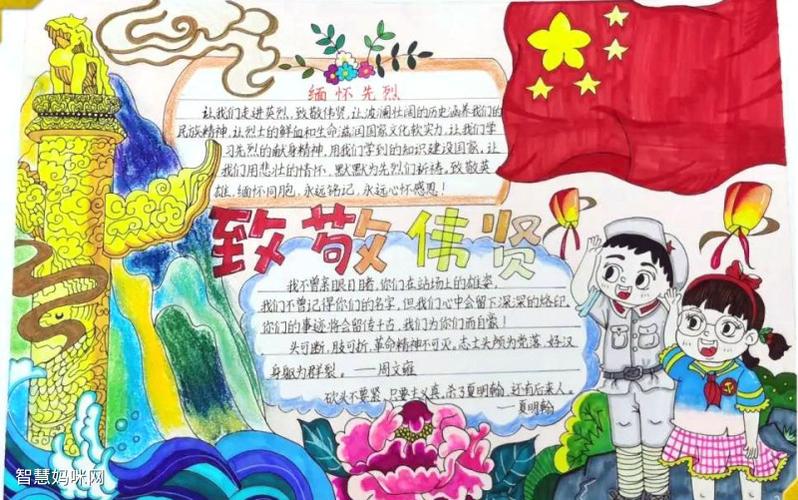 缅怀先烈
让我们走进英烈,致敬伟贤,让波澜壮阔的历史涵养我们的
民族精神,让烈士的鲜血和生命滋润国家文化软实力,让我们学
习先烈的献身精神,用我们学到的知识建设国家,让
我们用悲壮的情怀,默默为先烈们祈祷。致敬英
雄,缅怀同胞,永远铭记,永远心怀感恩!
致敬伟贤
我不曾亲眼目睹,你们在战场上的雄姿,
我们不曾记得你们的名字,但我们心中会留下深深的烙印,
你们的事迹将会留传千古,我们为你们而自豪!
头可断,肢可折,革命精神不可灭。志士头颅为党落,好汉
身躯为群裂。——周文雍
砍头不要紧,只要主义真,杀了夏明翰,还有后来人。
——夏明翰
智慧妈咪网